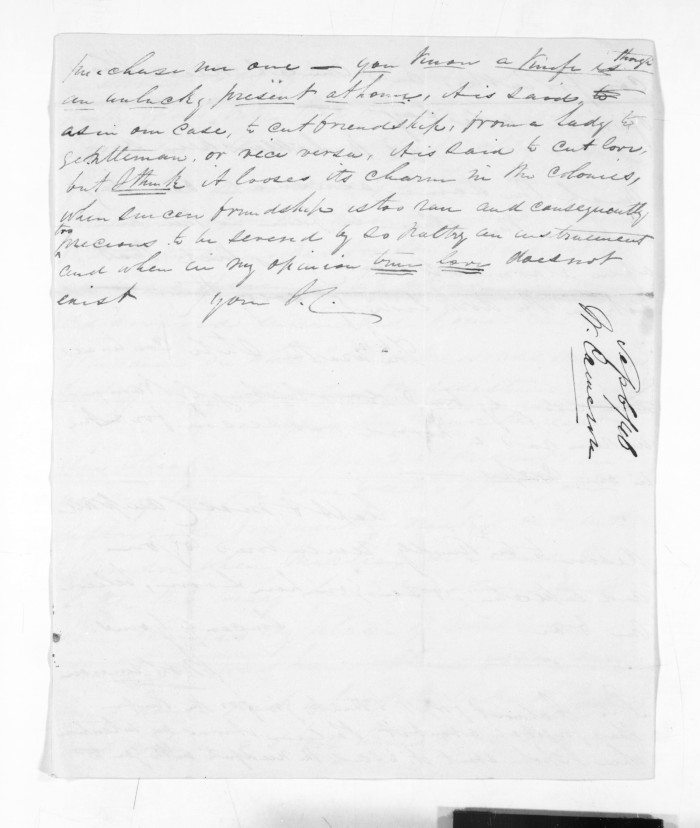 purchase me one — you know a knife is thought
an unlucky present at home, it is said, to
as in our case, to cut friendship, from a lady to
gentleman, or vice versa, it is said to cut love,
but I think it looses its charm in the colonies,
when sincere friendship is too rare and consequently
too precious to be severed by so paltry an instrument
and when in my opinion true love does not
exist your D.C.
Sep 6/46
D. Cameron